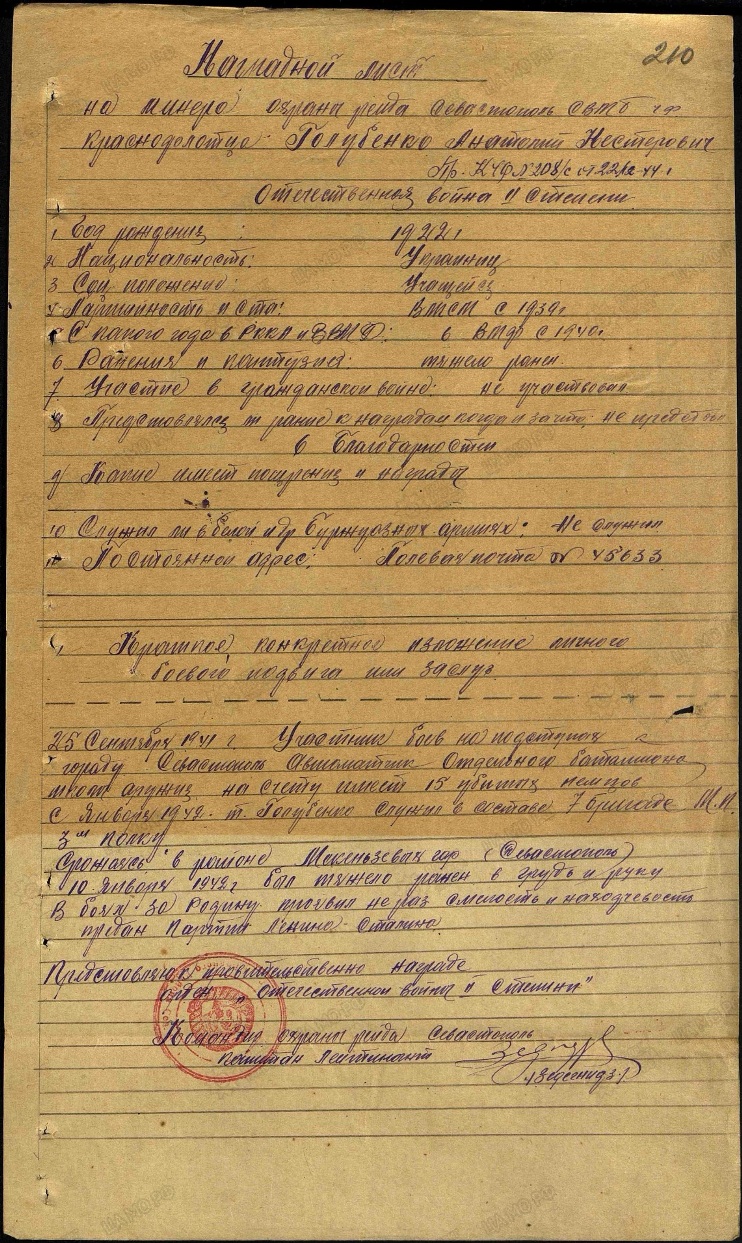 210
Наградной лист
на минера охрана рейда Севастополь СВМБ ЧФ
Краснофлотца Голубенко Анатолий Нестерович
Пр. КЧФ № 208/с от 22/12-44 г.
Отечественная война II Степени
1 Год рождения : 1922 г
2 Национальность: Украинец
3 Соц положение: Учащейся
4 Партийность и Стаж: ВЛКСМ с 1939 г.
5 С какого года в РККА и ВВМФ: в ВМФ с 1940 г.
6 Ранения и контузия: тяжело ранен.
7. Участие в гражданской войне: не участвовал
8 Представлялся ли ранее к наградам когда и за что: не представлял
6 Благодарностей
9) Какие имеет поощрения и награды
10 Служил ли в белой и др буржуазных армиях: Не служил
11 Постоянной адрес: Полевая почта № 45633
Краткое, конкретное изложение личного
боевого подвига или заслуг.
25 Сентября 1941 г Участник боев на подступах к
городу Севастополь Автоматчик Отдельного батальона
школ оружия на счету имеет 15 убитых немцев
с Января 1942 т. Голубенко служил в составе 7 бригаде М.П.
3ем полку
Сражаясь в районе Мекензевых гор (Севастополь)
10 Января 1942 г был тяжело ранен в грудь и руку
В боях за Родину проявил не раз смелость и находчевость
предан Партии Ленина-Сталина
Представляю к правительственно награде
орден „Отечественной война II Степени"
Командир охраны рейда Севастополь
капитан Лейтинант